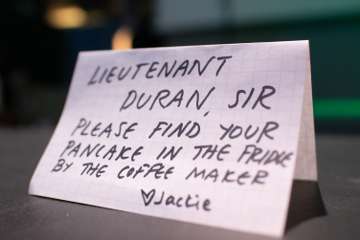 LIEUTENANT
DURAN, SIR
PLEASE FIND YOUR
PANCAKE IN THE FRIDGE
BY THE COFFEE MAKER
♥Jackie